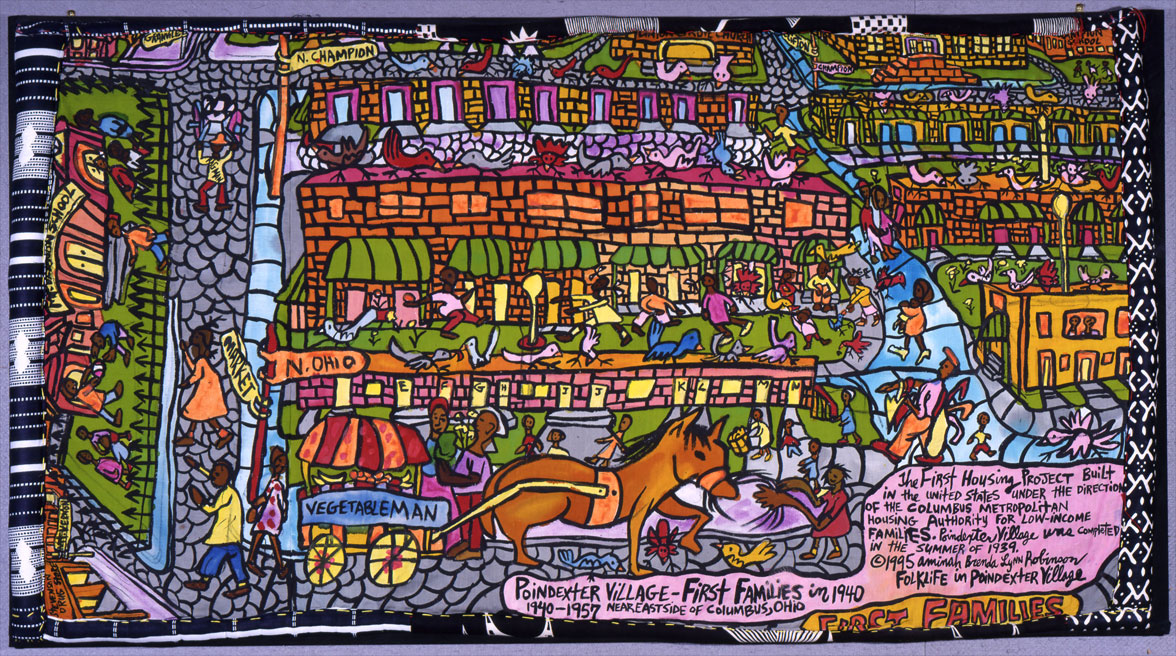 N. CHAMPION
CHAMPION
SCHOOL
MARKET
N. OHIO
E F G H I J J K L M N
VEGETABLEMAN
DRUG STORE
The First Housing Project Built
in the united States under the Direction
of the Columbus Metropolitan
Housing Authority for low-income
Families. Poindexter Village was completed
in the summer of 1939.
©1995 aminah Brenda Lynn Robinson
Folklife in Poindexter Village
Poindexter Village - First Families in 1940
1940-1957 Near Eastside of Columbus, Ohio
FIRST FAMILIES